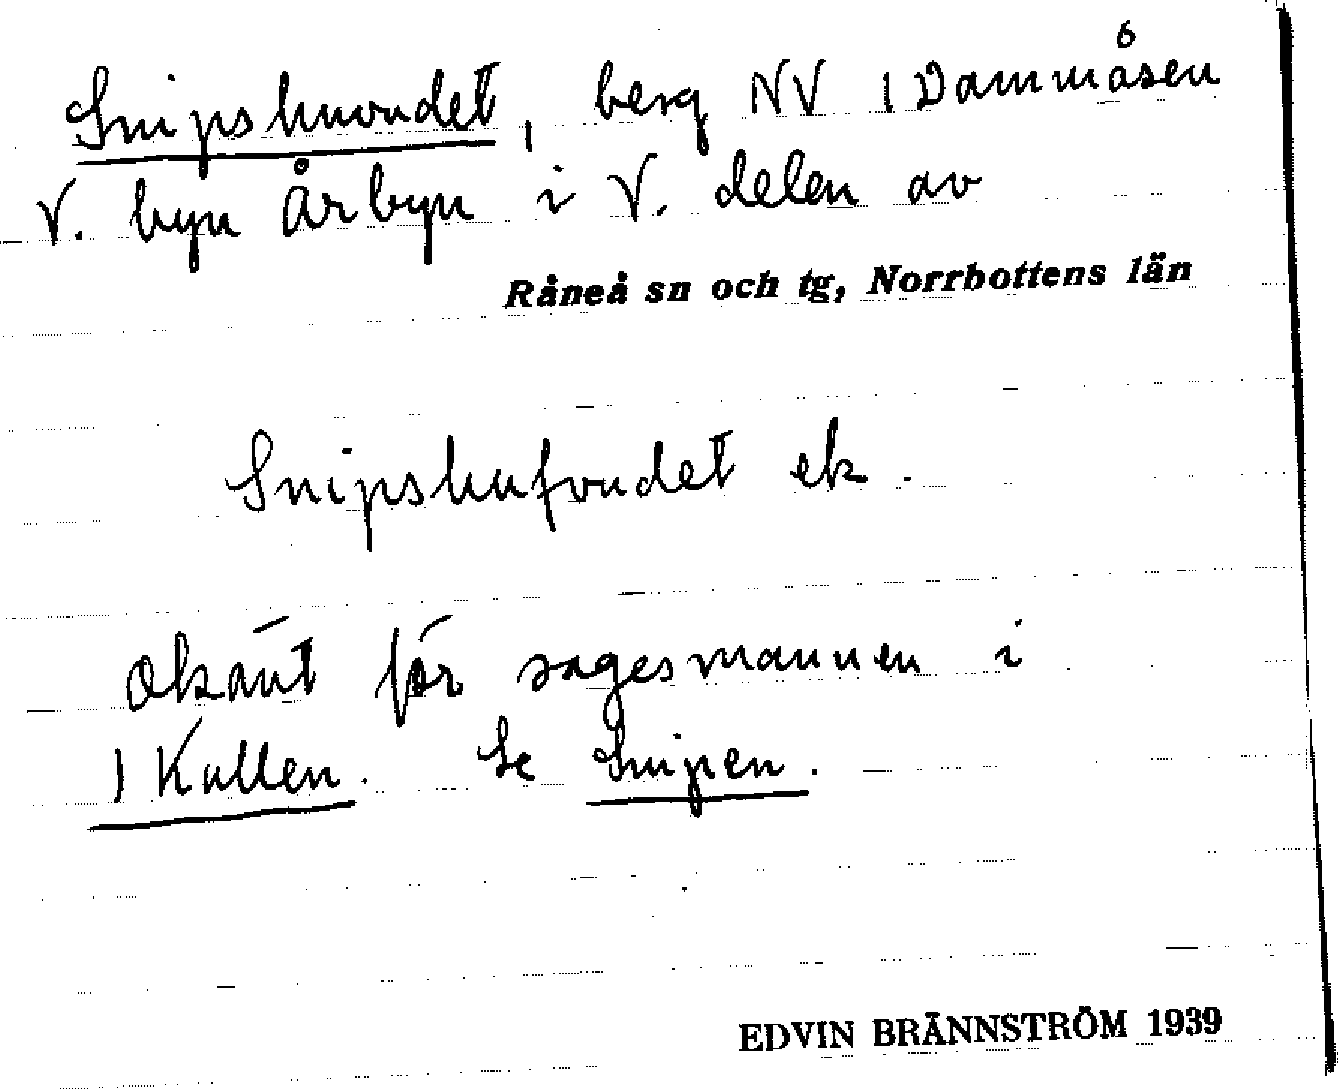 Snipshuvudet, berg NV 1 Dammåsen
V. byn Årbyn i V. delen av
Råneå sn och tg, Norrbottens län
Snipshufvudet ek.
Okänt för sagesmannen i
1 Kallen. Se Snipen.
EDVIN BRÄNNSTRÖM 1939